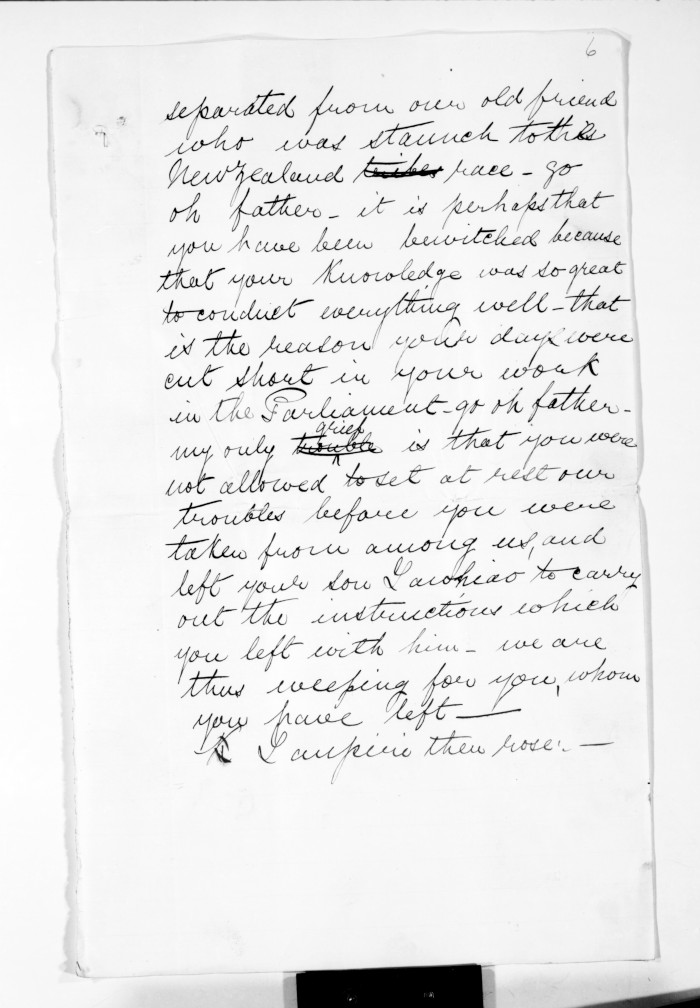 6
separated from our old friend
who was staunch to the
New Zealand tribes race - go
oh father - it is perhaps that
you have been bewitched because
that your knowledge was so great
to conduct everything well - that
is the reason your days were
cut short in your work
in the Parliament - go oh father -
grief
my only trouble is that you were
not allowed to set at rest our
troubles before you were
taken from among us, and
left your son Tawhiao to carry
out the instructions which
you left with him - we are
thus weeping for you, whom
you have left —
Taupiri then rose. —